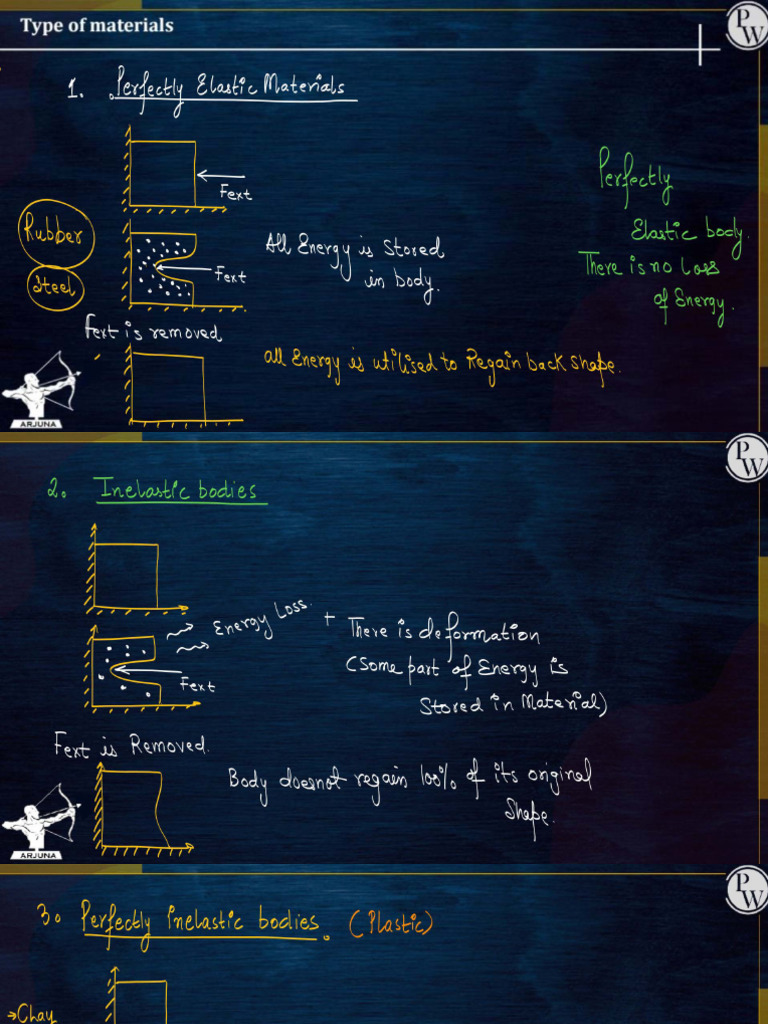 Type of materials
PW
1. Perfectly Elastic Materials
Fext
Perfectly
Elastic body.
There is no Loss
of Energy.
Rubber
Steel
Fext
All Energy is Stored
in body.
Fext is removed
all Energy is utilised to Regain back shape.
ARJUNA
PW
2. Inelastic bodies
Energy Loss.
+ There is deformation
(Some part of Energy is
Stored in Material)
Fext
Fext is Removed.
Body doesnot regain 100% of its original
Shape.
ARJUNA
PW
3. Perfectly inelastic bodies. (Plastic)
→Chay